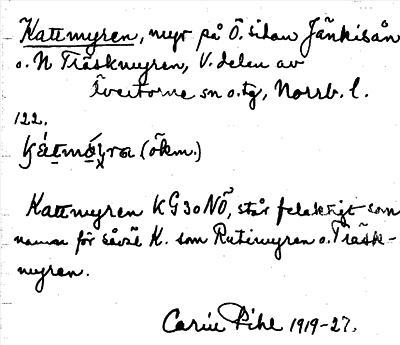 Kattmyren, myr på Ö. sidan Jänkisån
o. N Träskmyren, V. delen av
Övertorne sn o. tg, Norrb. l.
122.
(ökm.)
Kattmyren KG30NÖ, står felaktigt som
namn för såväl K. som Rutimyren o. Träsk-
myren.
Carin Pihl 1919-27.